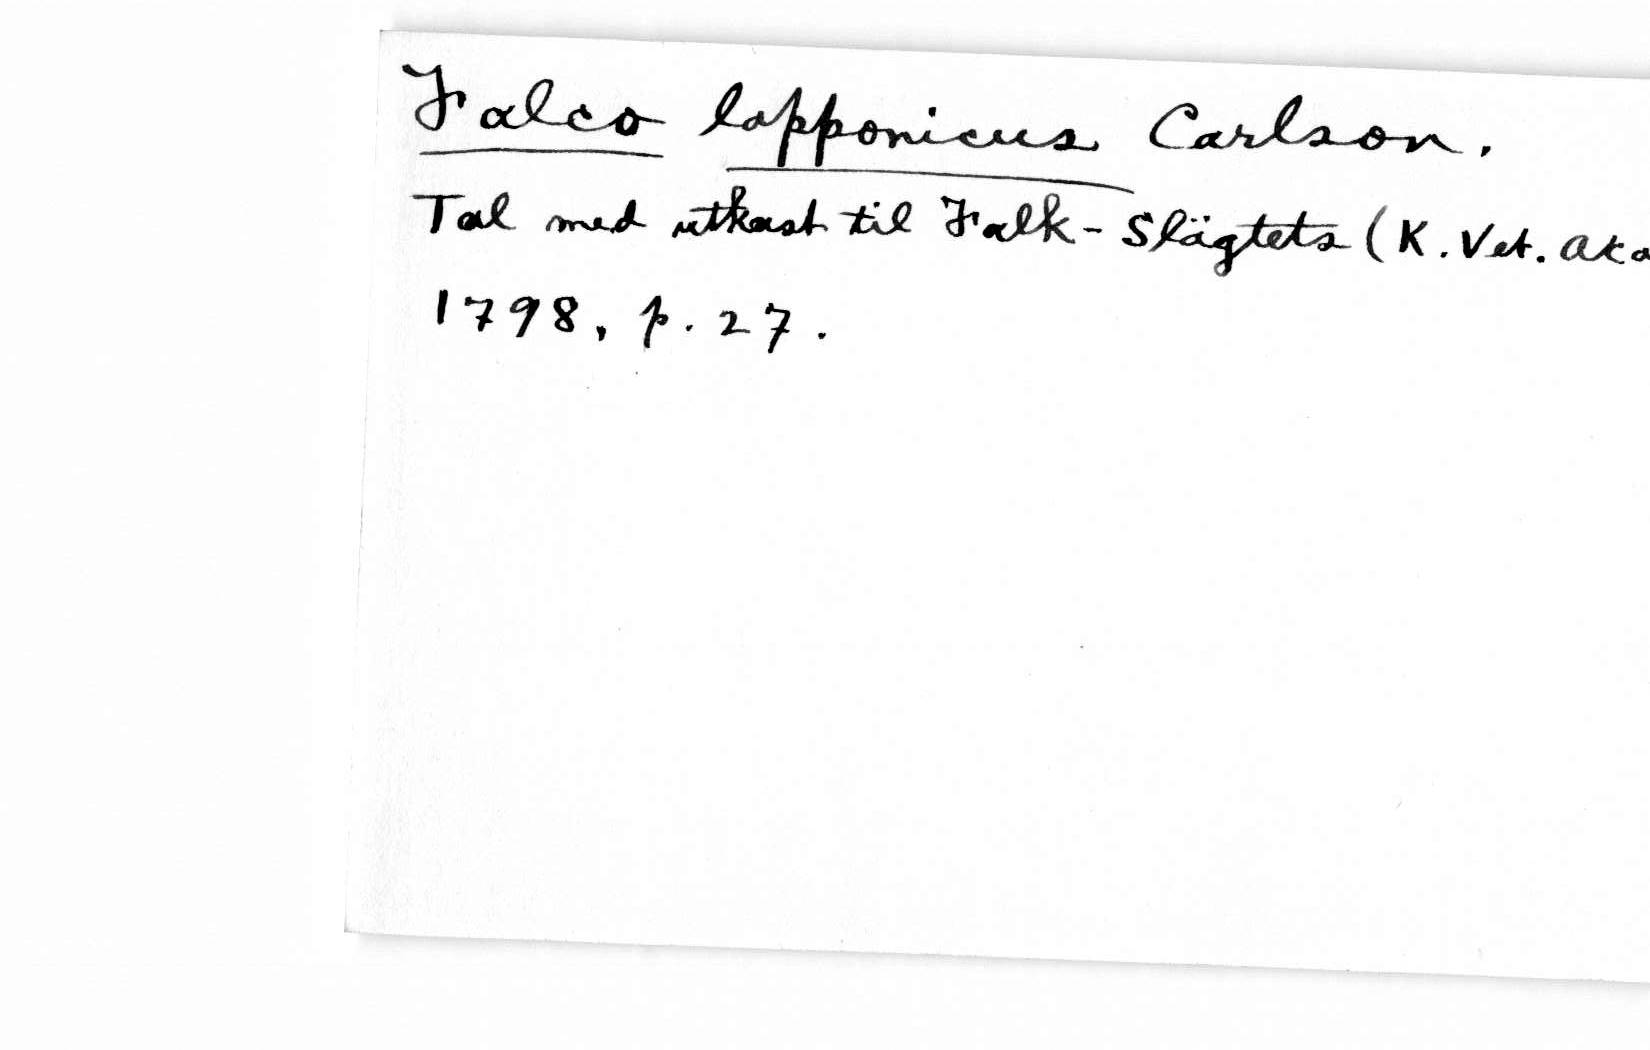 Falco lapponicus Carlson.
Tal med utkast til Falk-Slägtets (K. Vet. Aka
1798, p. 27.